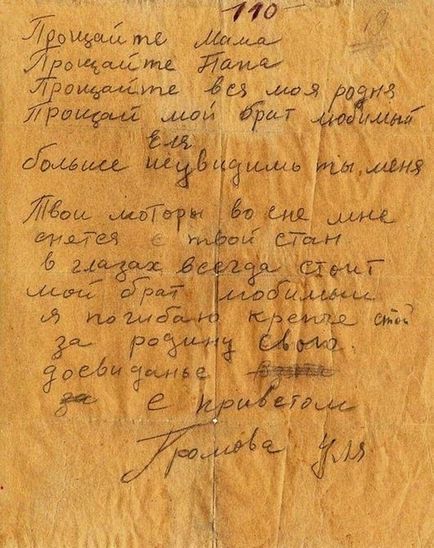 110
19
Прощайте Мама
Прощайте Папа
Прощайте вся моя родня
Прощай мой брат любимый
Еля
больше неувидишь ты, меня
Твои моторы во сне мне
снется с твой стан
в глазах всегда стоит
мой брат любимый
я погибаю крепче стой
за родину свою.
досвиданье
за с приветом
Громова Уля